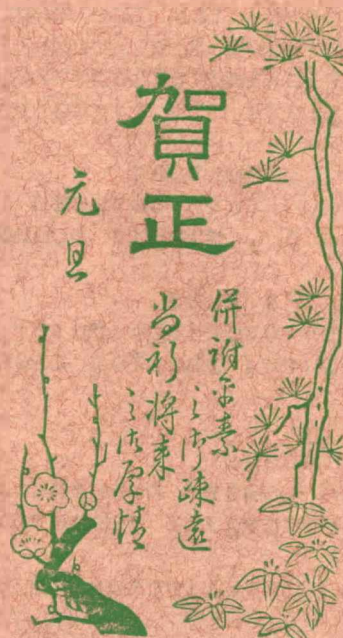 賀正
併謝平素
之御疎遠
尚祈将来
之御厚情
元旦